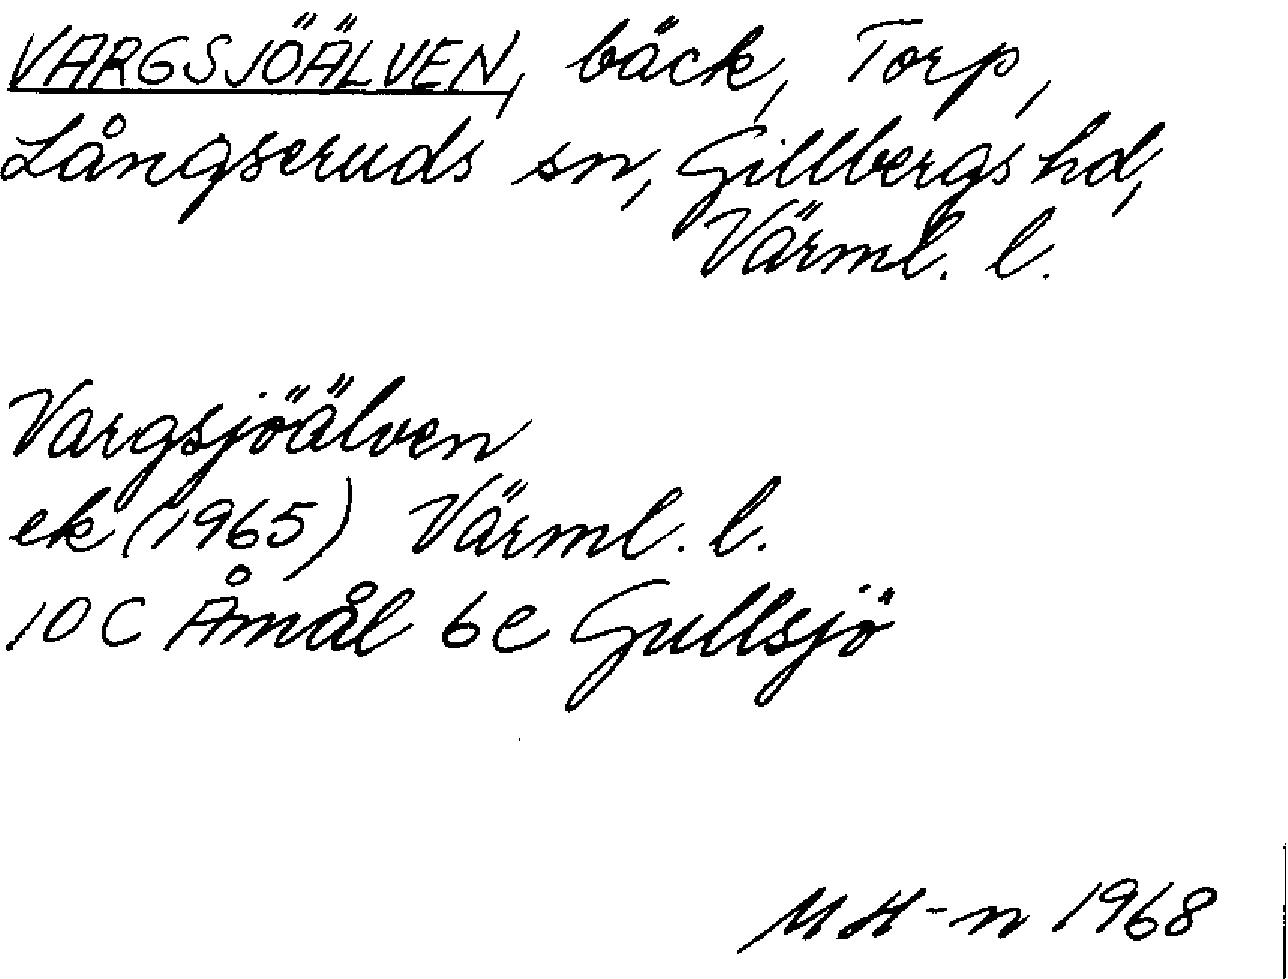 VARGSJÖÄLVEN, bäck, Torp,
Långseruds sn, Gillbergs hd,
Värml. l.
Vargsjöälven
ek (1965) Värml. l.
10 C Åmål 6e Gullsjö
MH-n 1968